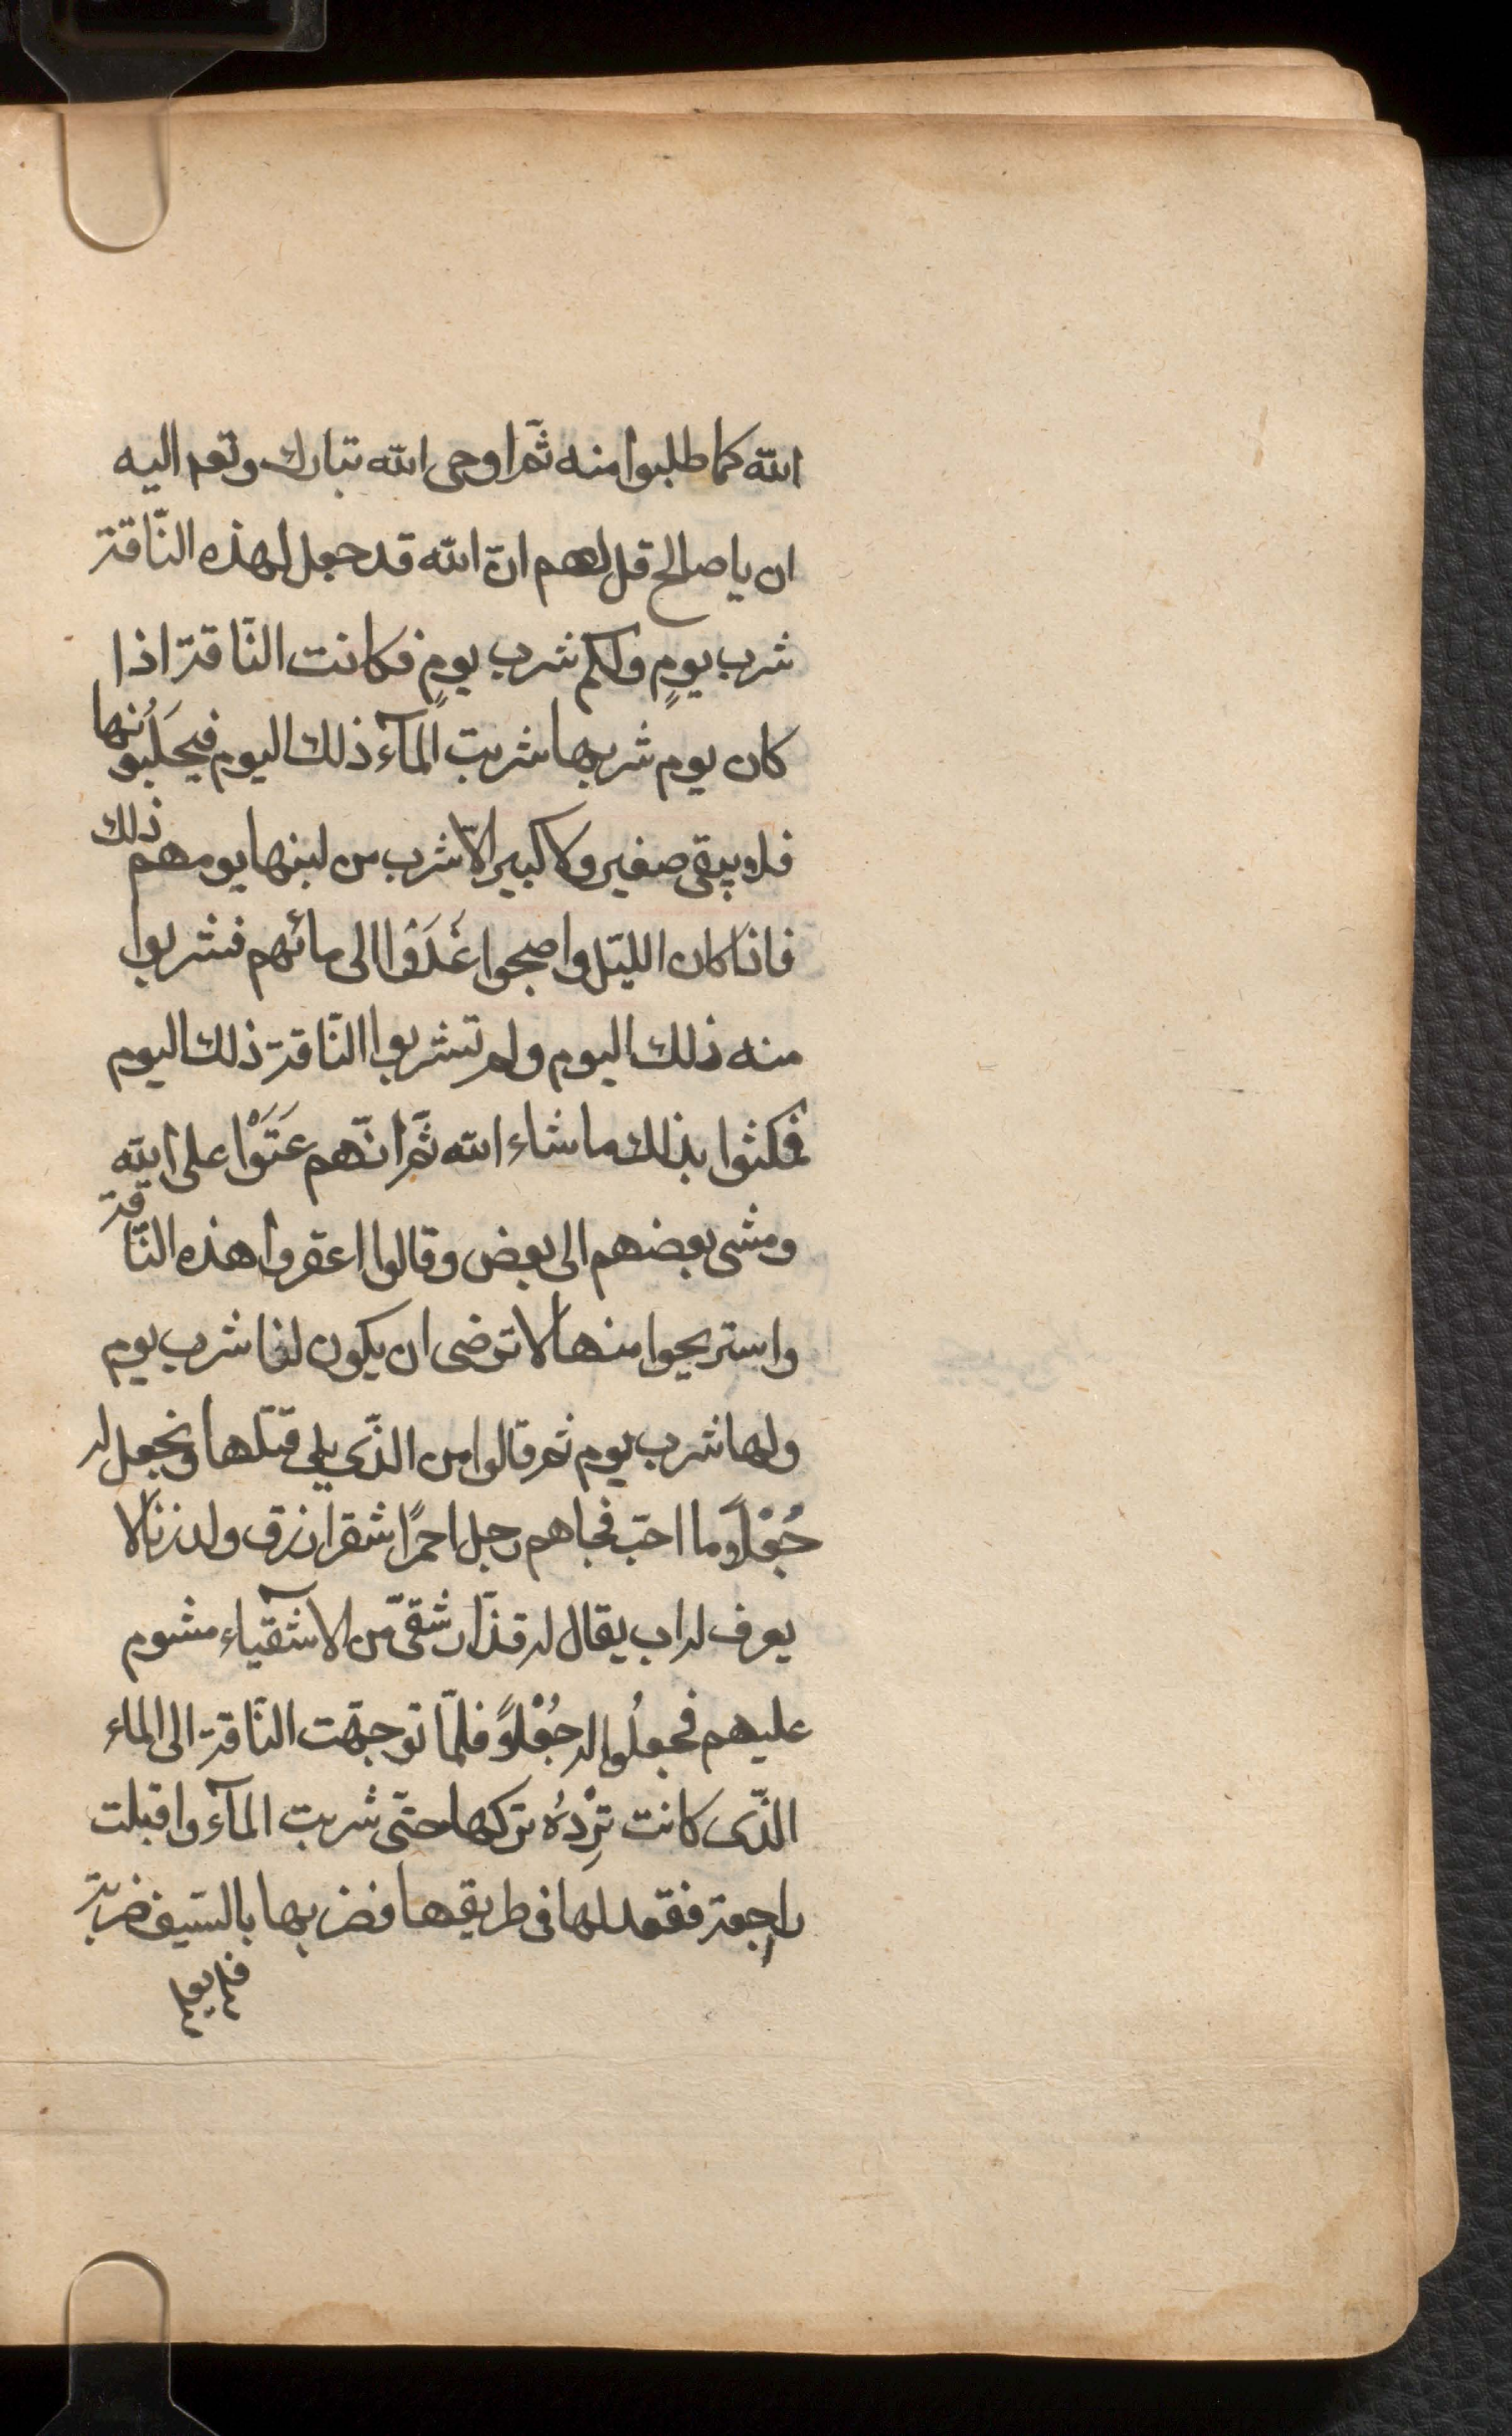 الله كما طلبوا منه ثمّ اوحى الله تبارك وتعم اليه
ان يا صالح قل لهم انّ الله قد جعل لهذه النّاقة
شرب يومٍ ولكم شرب يومٍ فكانت النّاقة اذا
كان يوم شربها شربت المآء ذلك اليوم فيحلَبُونها
فلا يبقى صغير ولا كبير الّا شرب من لبنها يومهم ذلك
فاذا كان الليّل واصبحوا غَدَوْا الى مائهم فشربوا
منه ذلك اليوم ولم تشربوا النّاقة ذلك اليوم
فمكثوا بذلك ما شاء الله ثمّ انّهم عَتَوْا على الله
ومشى بعضهم الى بعض وقالوا اعقروا هذه النّاقة
واستريحوا منها لا نرضى ان يكون لنا شرب يوم
ولها شرب يوم ثم قالوا من الذّى يلى قتلها ونجعل له
جُعْلاً وما احبّ فجاءهم رجل احمرًا شقر ازرق ولد زنا لا
يعرف له اب يقال له قذّار شقىّ من الاشقيآء مشوم
عليهم فجعلُوا له جُعْلاً فلمّا توجهّت النّاقة الى الماء
الذّى كانت تِرْدُه تركها حتّى شربت المآء واقبلت
راجعة فقعد لها فى طريقها فضربها بالسّيف ضربة
فلم يعم